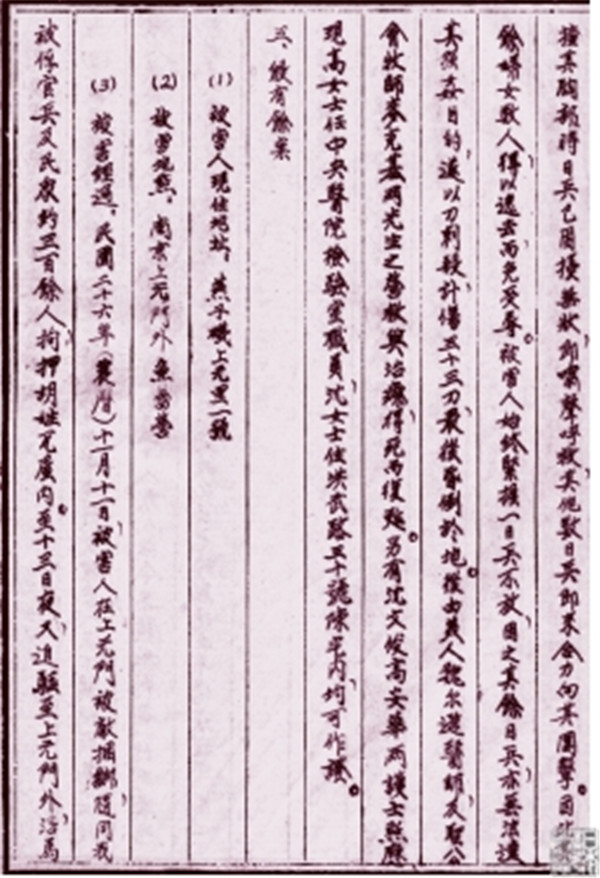 擋其胸頸時日兵已因擾無狀，即囑聲呼救，其他數日兵即來合力向其圍擊。因此其
餘婦女數人，得以逃去而免受辱。被害人始終緊握一日兵不放，因之其餘日兵，亦無法達
其強姦目的，遂以刀刺殺，計傷三十三刀，最後昏倒於地。後由美人魏爾遜醫師及聖公
會牧師麥克基兩先生之營救與治療，得死而復甦。另有沈文俊高安華兩護士熟歷
現高女士任中央醫院檢驗室職員，沈女士住洪武路五十號陳宅內，均可作證。
三、殷有餘案
(1) 被害人現住地址，燕子磯上元里一號
(2) 被害地點，南京上元門外魚雷營
(3) 被害經過，民國二十六年（農曆）十一月十一日，被害人在上元門被敵捆綁，隨同我
被俘官兵及民眾約三百餘人，拘押胡姓瓦廈內。至十三日夜，又迫驅至上元門外，沿馬